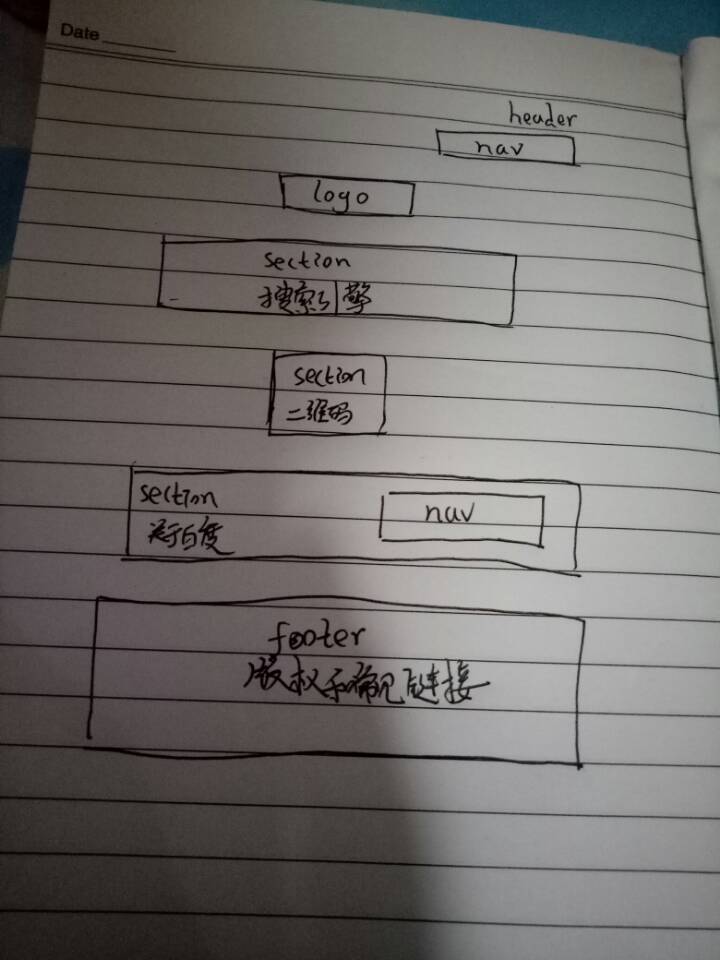 Date
header
nav
logo
section
搜索引擎
section
二维码
section
nav
关于百度
footer
版权和常见链接